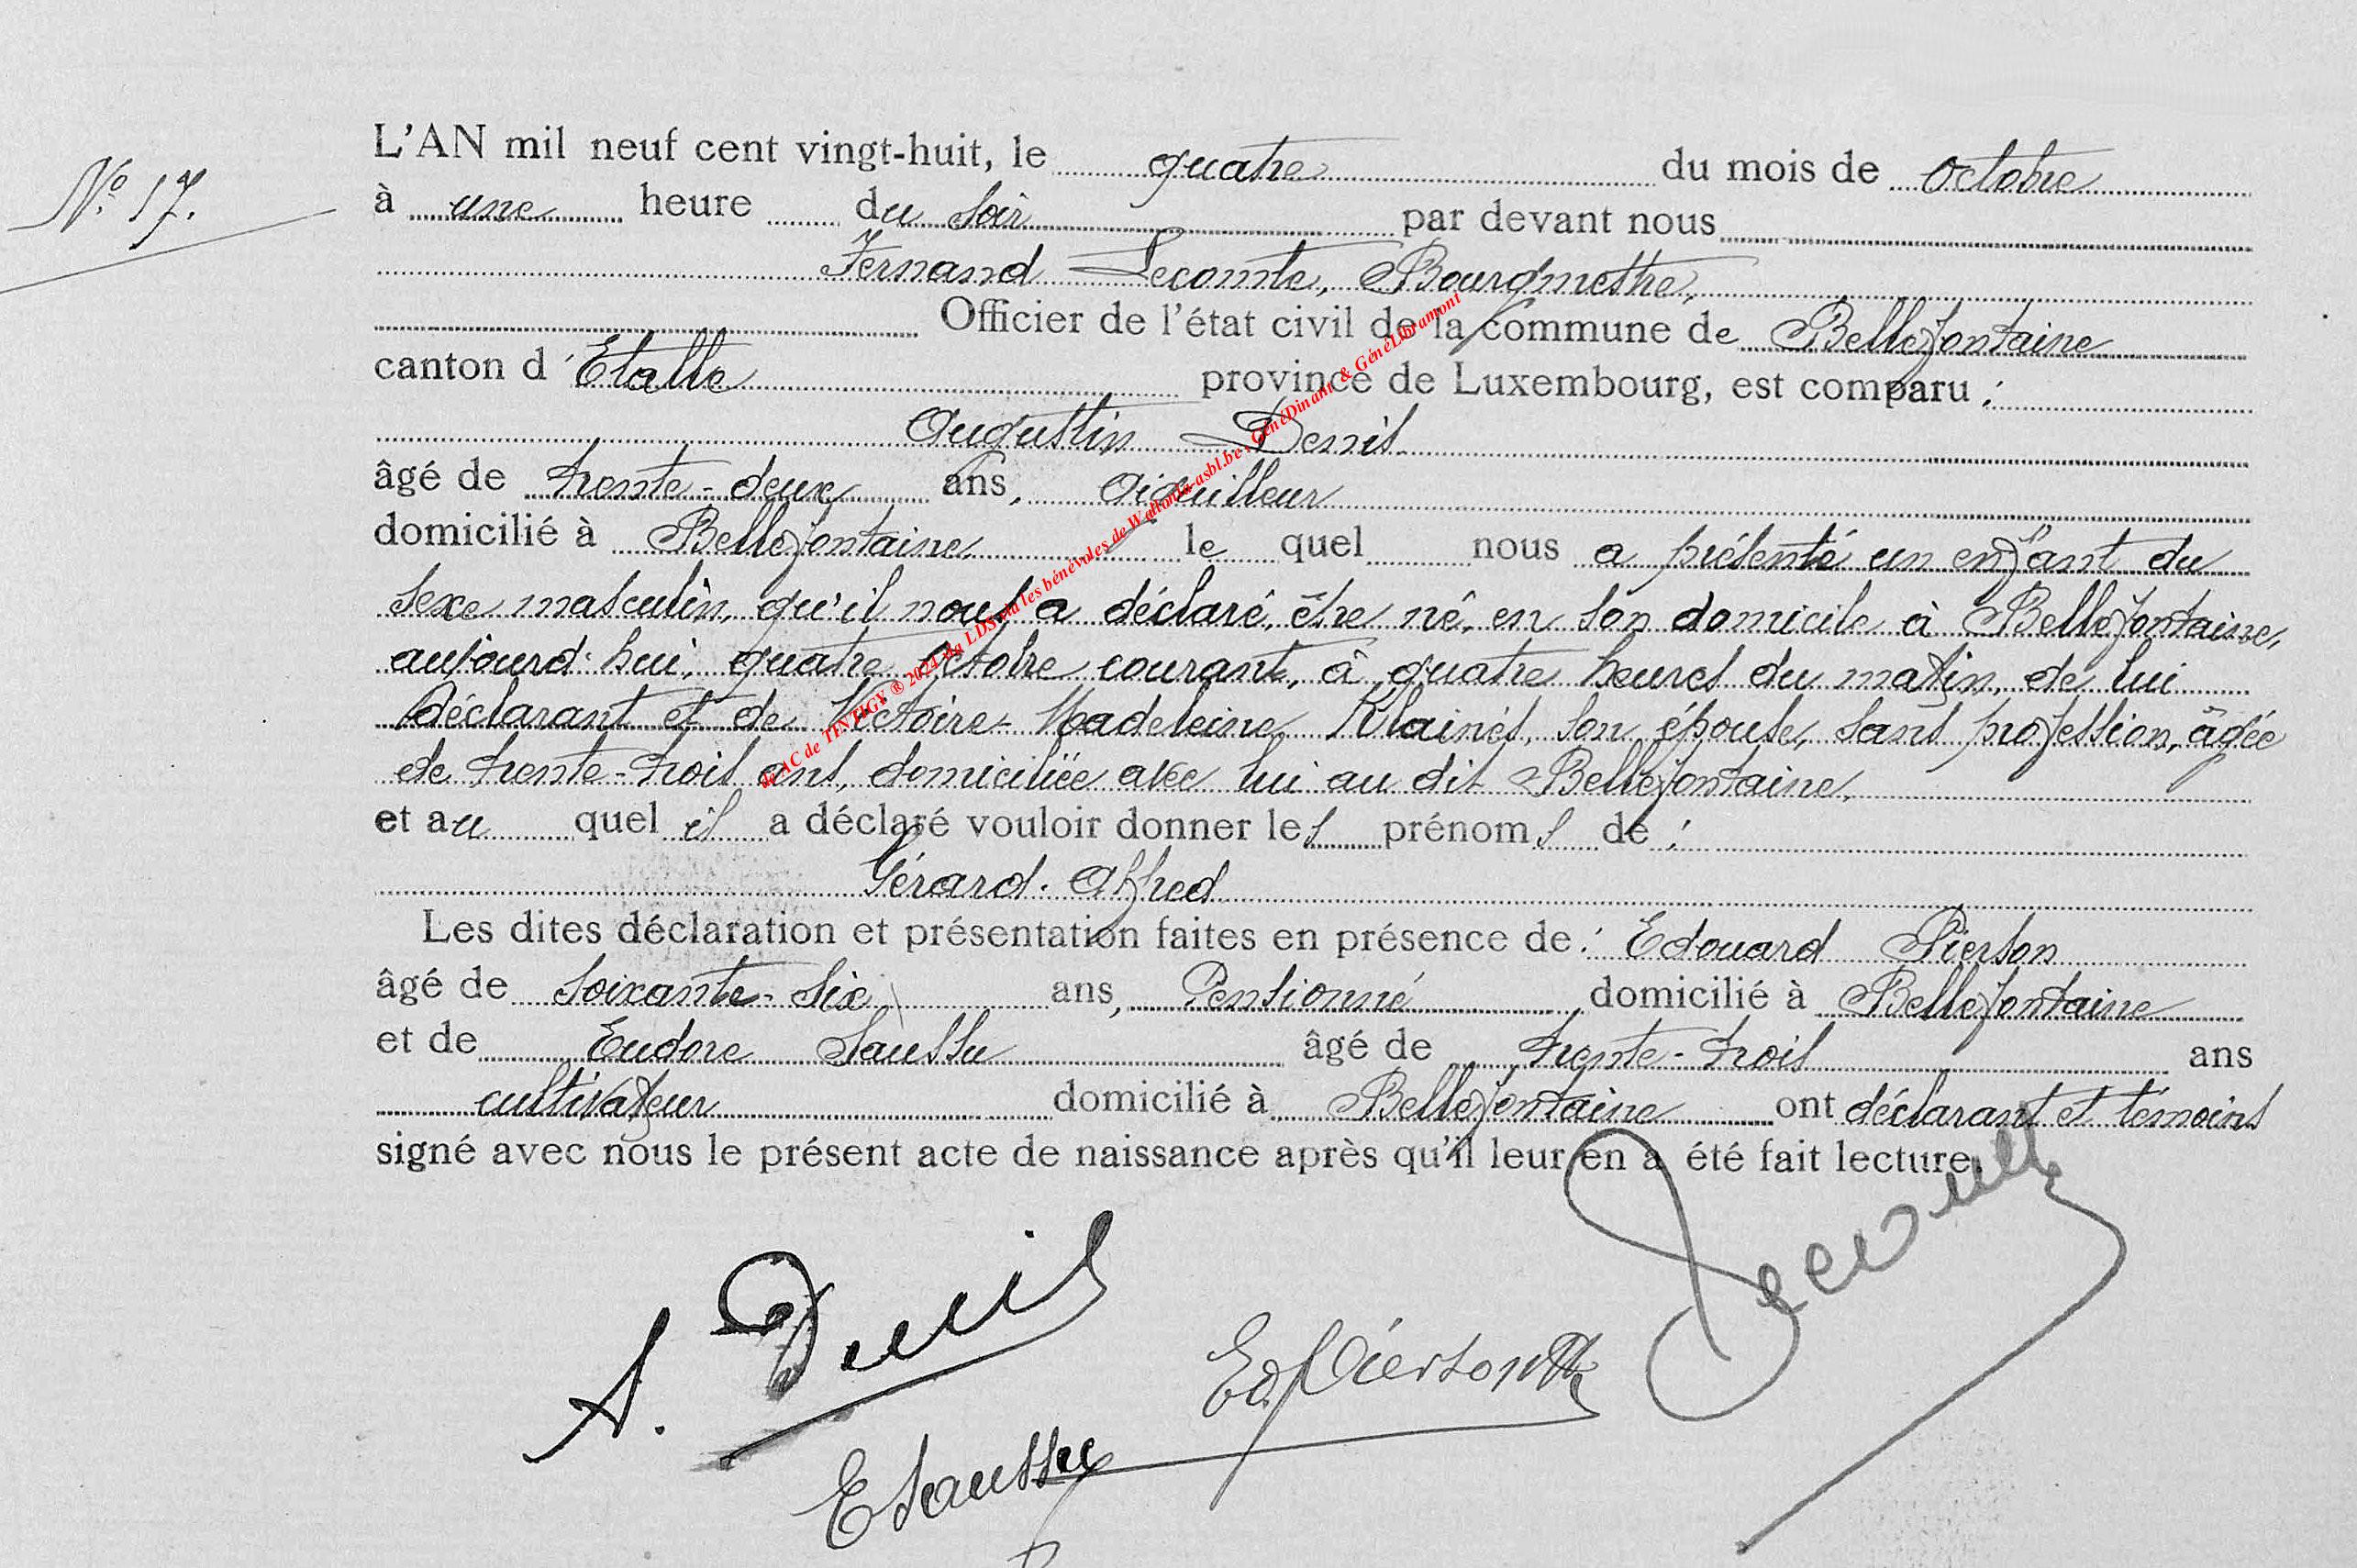 N° 17.
L'AN mil neuf cent vingt-huit, le quatre du mois de Octobre
à une heure du soir par devant nous
Fernand Lecomte, Bourgmestre,
Officier de l'état civil de la commune de Bellefontaine
canton d'Etalle province de Luxembourg, est comparu :
Augustin Denis
âgé de trente-deux ans, aiguilleur
domicilié à Bellefontaine le quel nous a présenté un enfant du
sexe masculin, qu'il nous a déclaré, être né, en son domicile à Bellefontaine,
aujourd'hui, quatre octobre courant, à quatre heures du matin, de lui
déclarant et de Victoire-Madeleine Klainés, son épouse, sans profession, âgée
de trente-trois ans, domiciliée avec lui au dit Bellefontaine,
et au quel il a déclaré vouloir donner les prénoms de :
Gérard-Alfred
Les dites déclaration et présentation faites en présence de : Edouard Pierson
âgé de soixante-six ans, Pensionné domicilié à Bellefontaine
et de Eudore Saussu âgé de trente-trois ans
cultivateur domicilié à Bellefontaine ont déclarant et témoins
signé avec nous le présent acte de naissance après qu'il leur en a été fait lecture.
A. Denis
Ed Pierson
E Saussu
de AC de TINTIGY ® 2024 via LDS via les bénévoles de Wallonia-asbl.be , GénéDinant & GénéLibramont